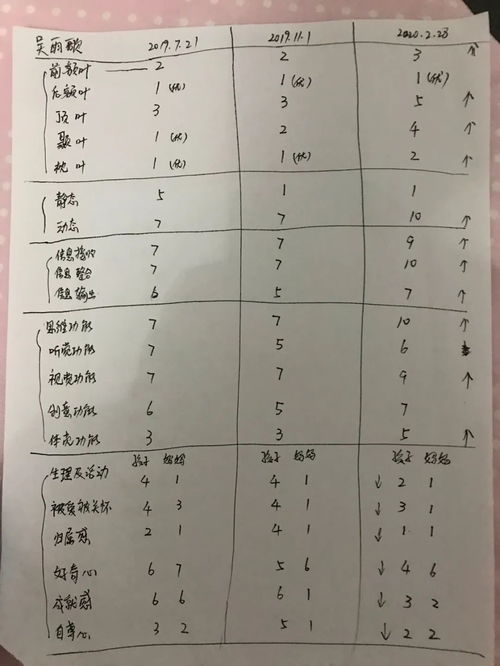 吴雨 2019.7.21 2019.11.1 2020.2.23
前额叶 2 2 3 ↑
后额叶 1(优) 1(优) 1(优)
顶叶 3 3 5 ↑
颞叶 1(优) 2 4 ↑
枕叶 1(优) 1(优) 2 ↑
静态 5 1 1
动态 7 7 10 ↑
信息接收 7 7 9 ↑
信息整合 7 7 10 ↑
信息输出 6 5 7 ↑
思维功能 7 7 10 ↑
听觉功能 7 5 6
视觉功能 7 7 9 ↑
创意功能 6 5 7
体觉功能 3 3 5 ↑
孩子 妈妈 孩子 妈妈 孩子 妈妈
生理及活动 4 1 4 1 ↓ 2 1
被爱被关怀 4 3 4 1 ↓ 3 1
归属感 2 1 4 1 ↓ 1 1
好奇心 6 7 5 6 ↓ 4 6
成就感 6 6 6 1 ↓ 3 2
自尊心 3 2 5 1 ↓ 2 2